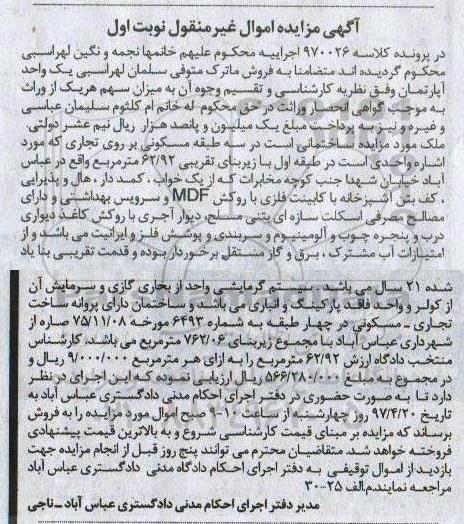 آگهی مزایده اموال غیر منقول نوبت اول
در پرونده کلاسه ۹۷۰۰۲۶ اجراییه محکوم علیهم خانمها نجمه و نگین لهراسبی
محکوم گردیده اند متضامنا به فروش ماترک متوفی سلمان لهراسبی یک واحد
آپارتمان وفق نظریه کارشناسی و تقسیم وجوه آن به میزان سهم هریک از وراث
به موجب گواهی انحصار وراثت در حق محکوم له خانم ام کلثوم سلیمان عباسی
و غیره و نیز به پرداخت مبلغ یک میلیون و پانصد هزار ریال نیم عشر دولتی.
ملک مورد مزایده ساختمانی است در سه طبقه مسکونی بر روی تجاری که مورد
اشاره واحدی است در طبقه اول با زیربنای تقریبی ۶۲/۹۲ مترمربع واقع در عباس
آباد خیابان شهدا جنب کوچه مخابرات که از یک خواب ، کمد دار ، هال و پذیرایی
، کف بتن آشپزخانه با کابینت فلزی با روکش MDF و سرویس بهداشتی و دارای
مصالح مصرفی اسکلت سازه ای بتنی مسلح، دیوار آجری با روکش کاغذ دیواری
درب و پنجره چوب و آلومینیوم و سربندی و پوشش فلز و ایرانیت می باشد و از
امتیازات آب مشترک ، برق و گاز مستقل برخوردار بوده و قدمت تقریبی بنا یاد
شده ۲۱ سال می باشد ، سیستم گرمایشی واحد از بخاری گازی و سرمایش آن
از کولر و واحد فاقد پارکینگ و انباری می باشد و ساختمان دارای پروانه ساخت
تجاری - مسکونی در چهار طبقه به شماره ۶۴۹۳ مورخه ۷۵/۱۱/۰۸ صادره از
شهرداری عباس آباد با مجموع زیربنای ۷۶۲/۰۶ مترمربع می باشد، کارشناس
منتخب دادگاه ارزش ۶۲/۹۲ مترمربع را به ازای هر مترمربع ۹/۰۰۰/۰۰۰ ریال و
در مجموع به مبلغ ۵۶۶/۲۸۰/۰۰۰ ریال ارزیابی نموده که این اجرای در نظر
دارد تا به صورت حضوری در دفتر اجرای احکام مدنی دادگستری عباس آباد به
تاریخ ۹۷/۴/۲۰ روز چهارشنبه از ساعت ۱۰-۹ صبح اموال مورد مزایده را به فروش
برساند که مزایده بر مبنای قیمت کارشناسی شروع و به بالاترین قیمت پیشنهادی
فروخته خواهد شد. متقاضیان محترم می توانند پنج روز قبل از انجام مزایده جهت
بازدید از اموال توقیفی به دفتر اجرای احکام دادگاه مدنی دادگستری عباس آباد
مراجعه نمایند.م.الف ۲۵-۳۰
مدیر دفتر اجرای احکام مدنی دادگستری عباس آباد - ناجی